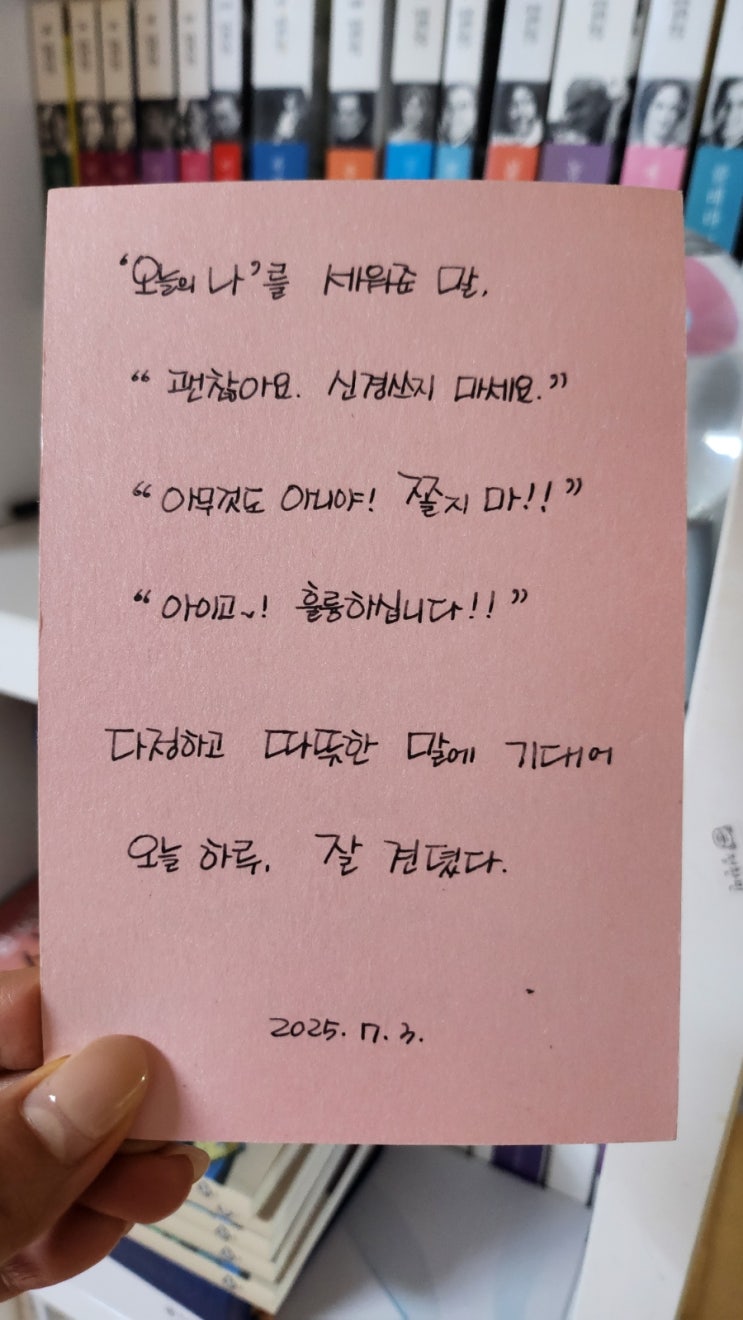 '오늘의 나'를 세워준 말,
“괜찮아요. 신경쓰지 마세요.”
“아무것도 아니야! 쫄지 마!!”
“아이고~! 훌륭하십니다!!”
다정하고 따뜻한 말에 기대어
오늘 하루, 잘 견뎠다.
2025. 7. 3.